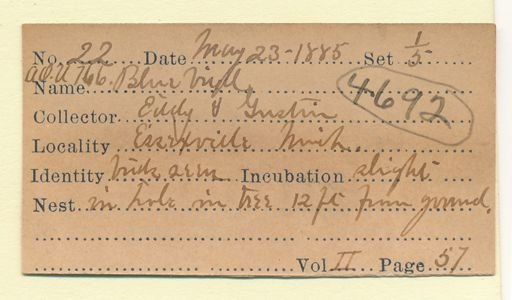 No. 22 Date May 23-1885 Set 1/5
A.O.U 766.
Name Blue Bird.
4692
Collector Eddy & Gustin
Locality Essexville Mich.
Identity birds seen Incubation slight
Nest in hole in tree 12 ft from ground.
Vol II Page 57